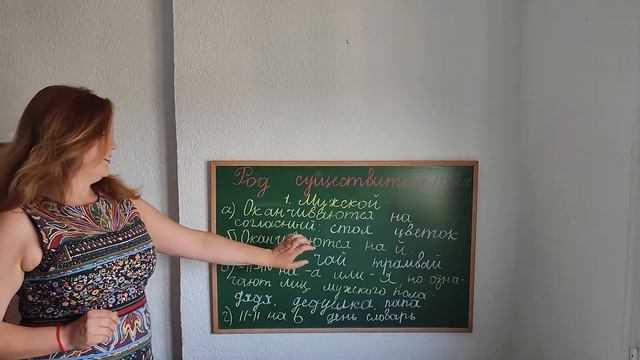 Род существительных
1. Мужской:
а) Оканчиваются на
согласный: стол цветок
б) Оканчиваются на й:
чай трамвай
в) -11-11 на -а или -я, но озна-
чают лиц мужского пола:
дядя, дедушка, папа
г) 11-11 на ь день словарь